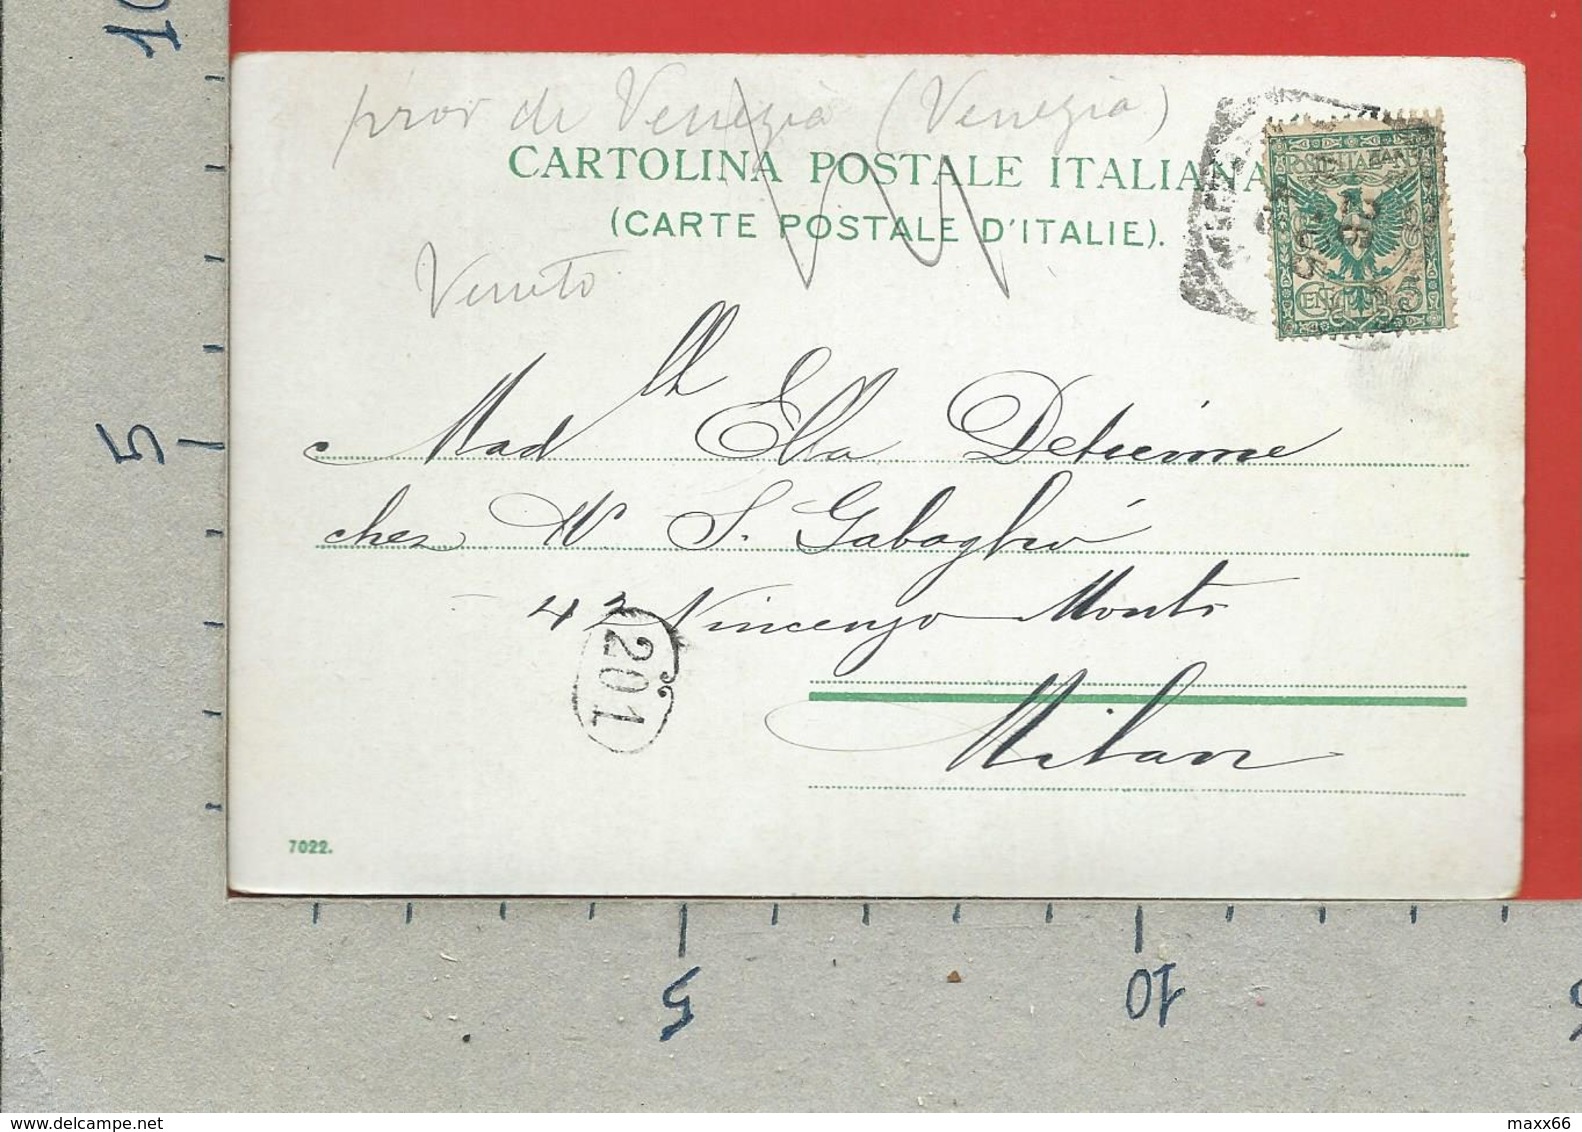 10
prov di Venezia (Venezia)
CARTOLINA POSTALE ITALIANA
(CARTE POSTALE D'ITALIE).
POSTE ITALIANE
CENT. 5
Veneto
Mad lle Ella
chez Mr S.
42 Vincenzo Monti
Milan
201
7022.
5
5
10
delcampe.net
maxx66